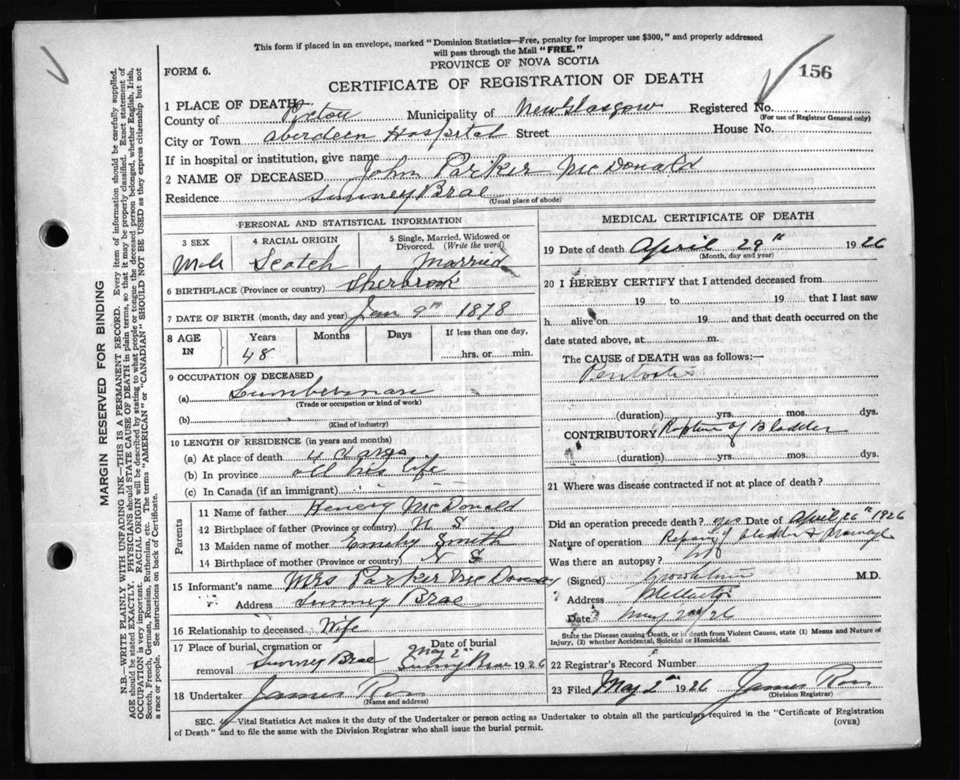 This form if placed in an envelope, marked "Dominion Statistics—Free, penalty for improper use $300," and properly addressed
will pass through the Mail "FREE."
PROVINCE OF NOVA SCOTIA
FORM 6.
CERTIFICATE OF REGISTRATION OF DEATH
156
1 PLACE OF DEATH
County of Pictou Municipality of New Glasgow Registered No.
(For use of Registrar General only)
City or Town Aberdeen Hospital Street House No.
If in hospital or institution, give name
2 NAME OF DECEASED John Parker McDonald
Residence Sunney Brae
(Usual place of abode)
PERSONAL AND STATISTICAL INFORMATION
3 SEX 4 RACIAL ORIGIN 5 Single, Married, Widowed or
Divorced. (Write the word)
Male Scotch Married
6 BIRTHPLACE (Province or country) Sherbrook
7 DATE OF BIRTH (month, day and year) Jan 9th 1878
8 AGE IN Years Months Days If less than one day,
48 hrs. or min.
9 OCCUPATION OF DECEASED
(a) Lumberman
(Trade or occupation or kind of work)
(b)
(Kind of industry)
10 LENGTH OF RESIDENCE (in years and months)
(a) At place of death 4 days
(b) In province all his life
(c) In Canada (if an immigrant)
Parents
11 Name of father Henery McDonald
12 Birthplace of father (Province or country) N S
13 Maiden name of mother Emily Smith
14 Birthplace of mother (Province or country) N S
15 Informant's name Mrs Parker McDonald
Address Sunney Brae
16 Relationship to deceased Wife
17 Place of burial, cremation or Date of burial
removal Sunney Brae May 2nd 1926
Sunny Brae
18 Undertaker James Ross
(Name and address)
MEDICAL CERTIFICATE OF DEATH
19 Date of death April 29th 1926
(Month, day and year)
20 I HEREBY CERTIFY that I attended deceased from
19 to 19 that I last saw
h alive on 19 and that death occurred on the
date stated above, at m.
The CAUSE of DEATH was as follows:—
(duration) yrs. mos. dys.
CONTRIBUTORY Rupture of Bladder
(duration) yrs. mos. dys.
21 Where was disease contracted if not at place of death?
Did an operation precede death? yes Date of April 26th 1926
Nature of operation Repair of bladder & drainage
Was there an autopsy? No
(Signed) M.D.
Address
Date May 2nd/26
State the Disease causing Death, or in death from Violent Causes, state (1) Means and Nature of
Injury, (2) whether Accidental, Suicidal or Homicidal.
22 Registrar's Record Number
23 Filed May 2nd 1926 James Ross
(Division Registrar)
SEC. 46—Vital Statistics Act makes it the duty of the Undertaker or person acting as Undertaker to obtain all the particulars required in the "Certificate of Registration
of Death" and to file the same with the Division Registrar who shall issue the burial permit.
(OVER)
MARGIN RESERVED FOR BINDING
N.B.—WRITE PLAINLY WITH UNFADING INK—THIS IS A PERMANENT RECORD. Every item of information should be carefully supplied.
AGE should be stated EXACTLY. PHYSICIANS should STATE CAUSE OF DEATH in plain terms, so that it may be properly classified. Exact statement of
OCCUPATION is very important. RACIAL ORIGIN will be described by stating to what people or tongue the deceased person belonged, whether English, Irish,
Scotch, French, German, Russian, Ruthenian, etc. The terms "AMERICAN" or "CANADIAN" SHOULD NOT BE USED as they express citizenship but not
a race or people. See instructions on back of Certificate.